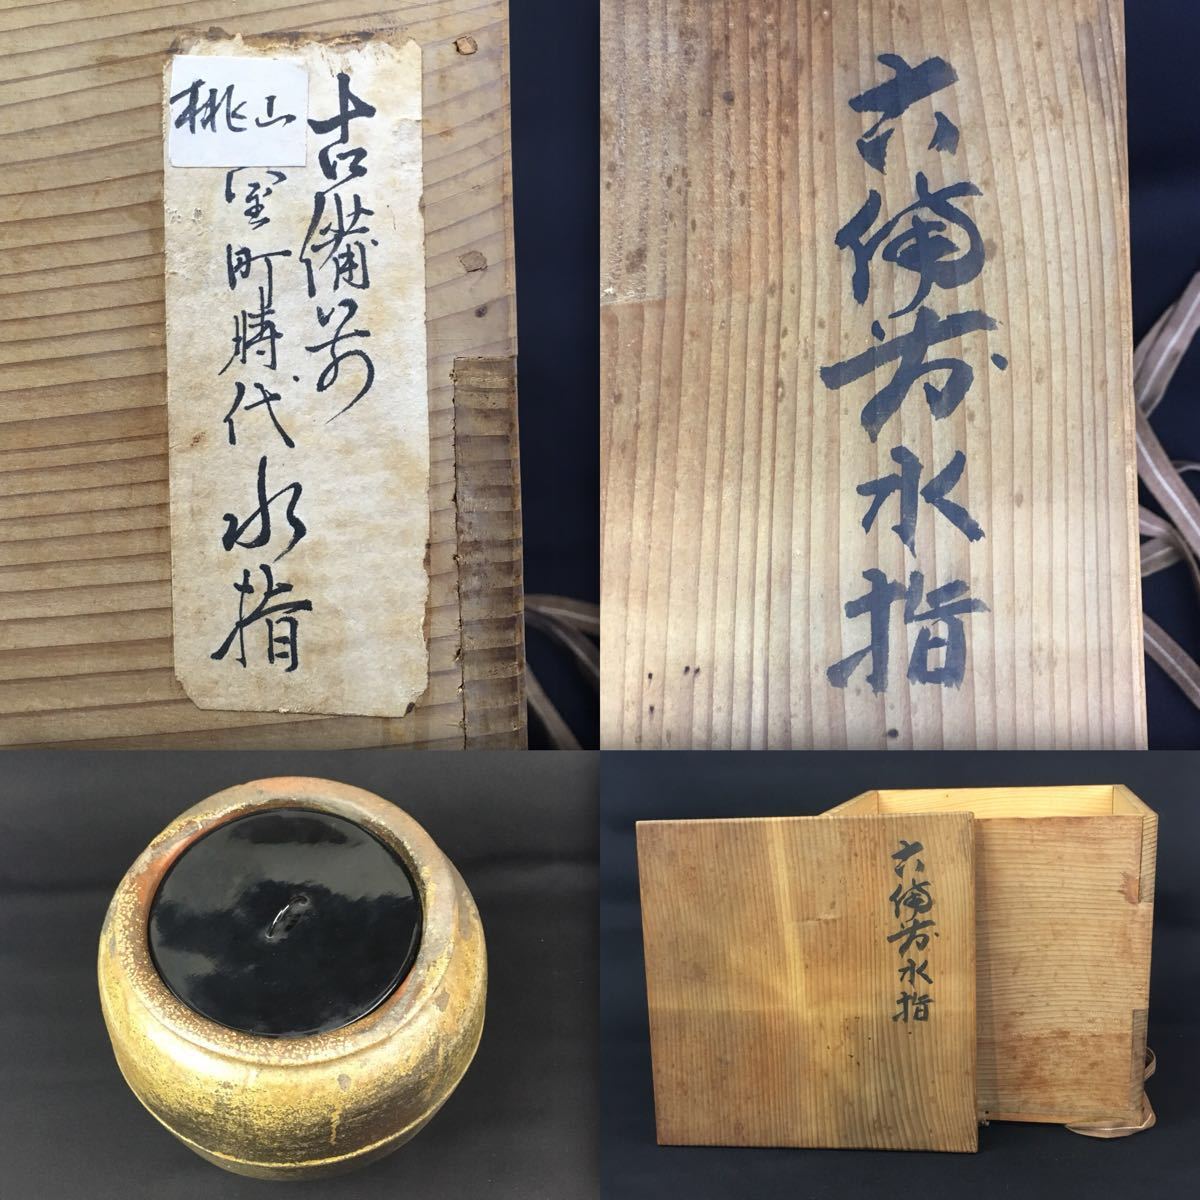 古備前
桃山
室町時代水指
古備前水指
古備前水指